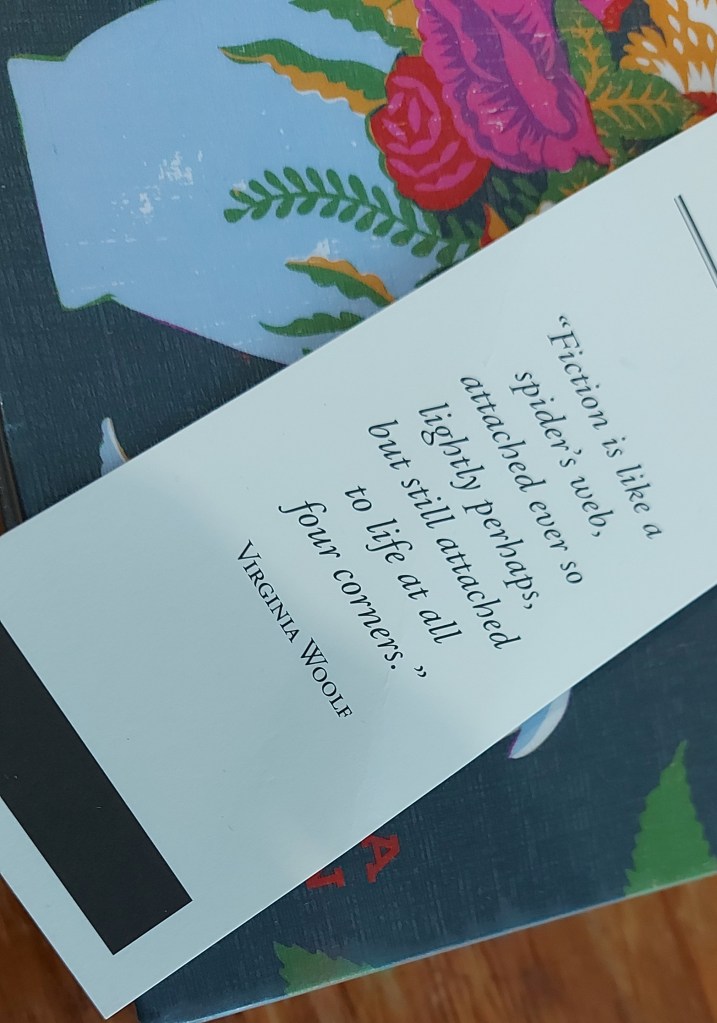 “Fiction is like a
spider’s web,
attached ever so
lightly perhaps,
but still attached
to life at all
four corners.”
VIRGINIA WOOLF